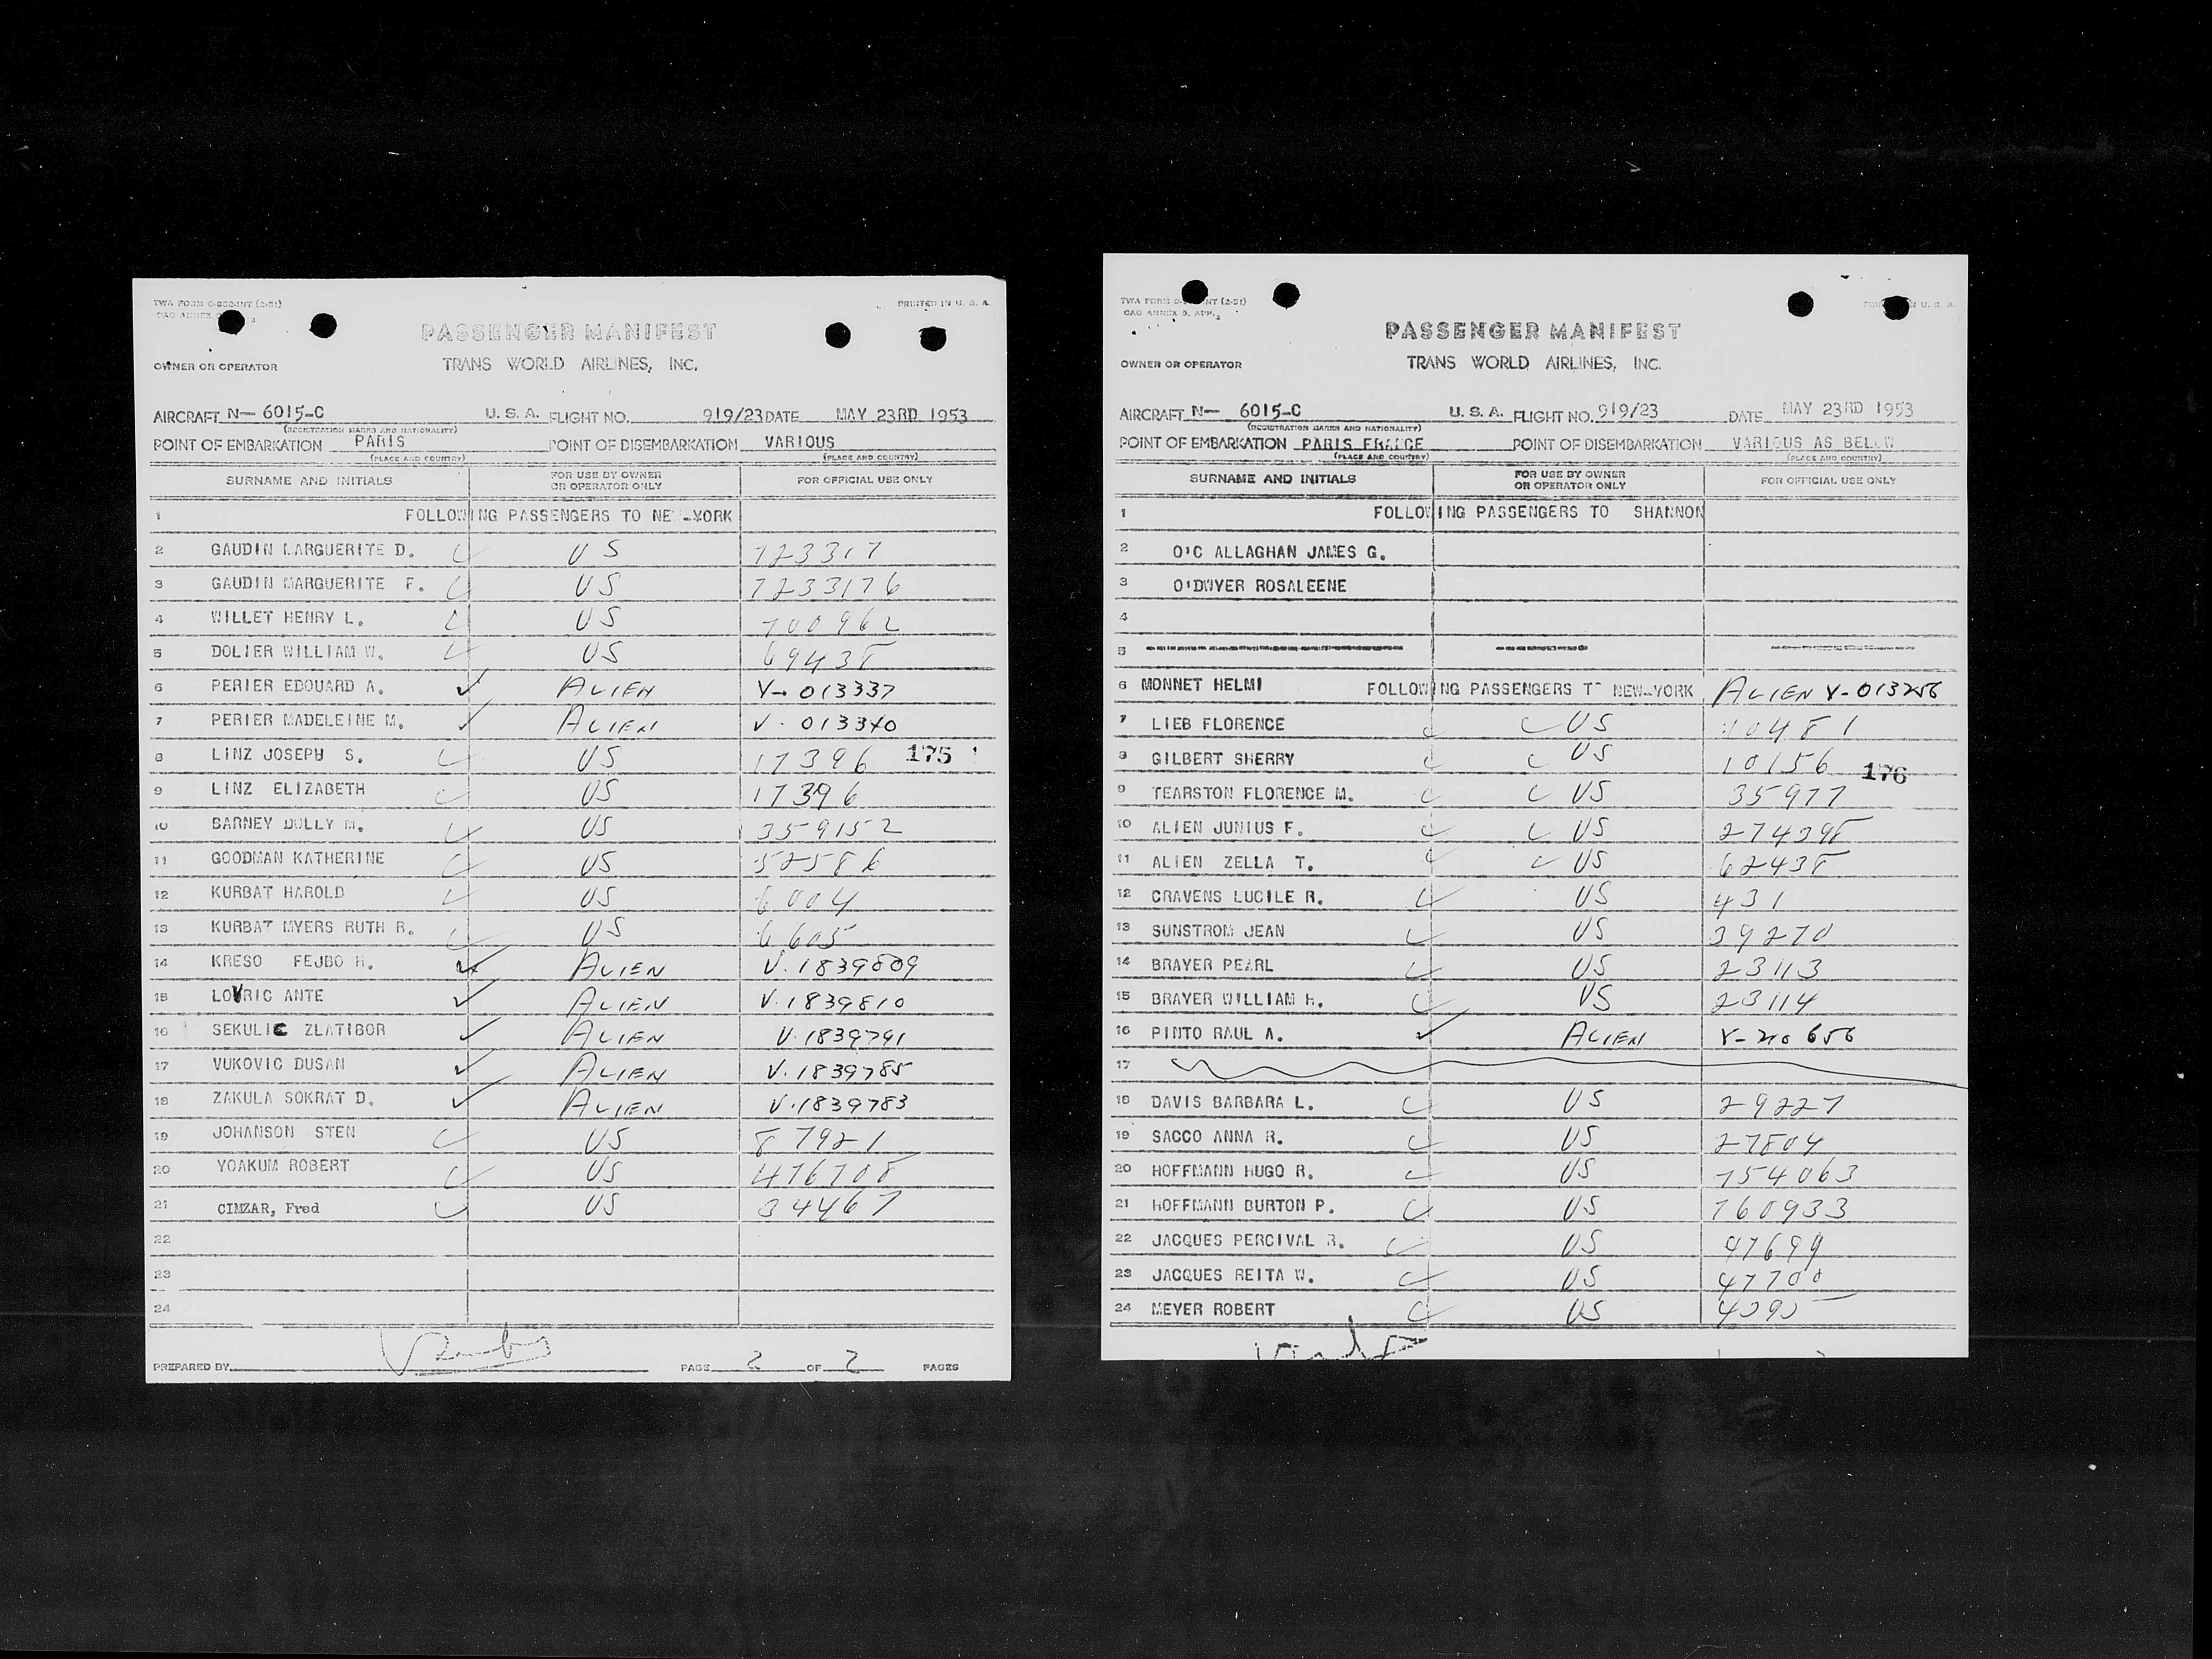 TWA FORM O-800-INT (2-51)
PRINTED IN U. S. A.
PASSENGER MANIFEST
OWNER OR OPERATOR
TRANS WORLD AIRLINES, INC.
AIRCRAFT N- 6015-C U. S. A. FLIGHT NO. 919/23 DATE MAY 23RD 1953
(REGISTRATION MARKS AND NATIONALITY)
POINT OF EMBARKATION PARIS POINT OF DISEMBARKATION VARIOUS
(PLACE AND COUNTRY) (PLACE AND COUNTRY)
SURNAME AND INITIALS FOR USE BY OWNER OR OPERATOR ONLY FOR OFFICIAL USE ONLY
1 FOLLOWING PASSENGERS TO NEW-YORK
2 GAUDIN MARGUERITE D. US 723317
3 GAUDIN MARGUERITE F. US 7233176
4 WILLET HENRY L. US 700962
5 DOLIER WILLIAM W. US 69438
6 PERIER EDOUARD A. ✓ ALIEN V- 013337
7 PERIER MADELEINE M. ✓ ALIEN V- 013340
8 LINZ JOSEPH S. US 17396 175
9 LINZ ELIZABETH US 17396
10 BARNEY DOLLY M. US 359152
11 GOODMAN KATHERINE US 52586
12 KURBAT HAROLD US 6004
13 KURBAT MYERS RUTH R. US 6605
14 KRESO FEJBO H. ✓ ALIEN V. 1839809
15 LOVRIC ANTE ✓ ALIEN V. 1839810
16 SEKULIC ZLATIBOR ✓ ALIEN V. 1839791
17 VUKOVIC DUSAN ✓ ALIEN V. 1839785
18 ZAKULA SOKRAT D. ✓ ALIEN V. 1839783
19 JOHANSON STEN US 87921
20 YOAKUM ROBERT US 476708
21 CIMZAR, Fred US 34467
22
23
24
PREPARED BY PAGE 2 OF 2 PAGES
TWA FORM O- INT (2-51)
CAO ANNEX 9, APP. 2
U. S. A.
PASSENGER MANIFEST
OWNER OR OPERATOR
TRANS WORLD AIRLINES, INC.
AIRCRAFT N- 6015-C U. S. A. FLIGHT NO. 919/23 DATE MAY 23RD 1953
(REGISTRATION MARKS AND NATIONALITY)
POINT OF EMBARKATION PARIS FRANCE POINT OF DISEMBARKATION VARIOUS AS BELOW
(PLACE AND COUNTRY) (PLACE AND COUNTRY)
SURNAME AND INITIALS FOR USE BY OWNER OR OPERATOR ONLY FOR OFFICIAL USE ONLY
1 FOLLOWING PASSENGERS TO SHANNON
2 O'C ALLAGHAN JAMES G.
3 O'DWYER ROSALEENE
4
5
6 MONNET HELMI FOLLOWING PASSENGERS TO NEW-YORK ALIEN V-013256
7 LIEB FLORENCE US 10481
8 GILBERT SHERRY US 10156 176
9 TEARSTON FLORENCE M. US 35977
10 ALIEN JUNIUS F. US 274398
11 ALIEN ZELLA T. US 62438
12 CRAVENS LUCILE R. US 431
13 SUNSTROM JEAN US 39270
14 BRAYER PEARL US 23113
15 BRAYER WILLIAM H. US 23114
16 PINTO RAUL A. ✓ ALIEN V-210656
17
18 DAVIS BARBARA L. US 29227
19 SACCO ANNA R. US 27804
20 HOFFMANN HUGO R. US 754063
21 HOFFMANN BURTON P. US 760933
22 JACQUES PERCIVAL R. US 47699
23 JACQUES REITA W. US 47700
24 MEYER ROBERT US